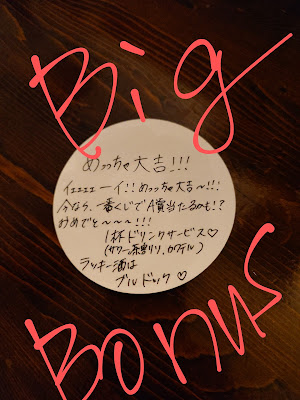 Big
めっちゃ大吉!!!
イェェェェーイ!!めっちゃ大吉~!!!
今なら、一番くじでA賞当たるかも!?
おめでと~~~!!!
1杯ドリンクサービス♡
(サワー、茶割リ、カクテル)
ラッキー酒は
ブルドック♡
Bonus